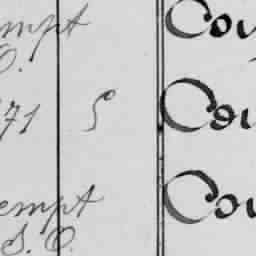 empt Cou
O.
71 S Cou
empt Cou
S. O.